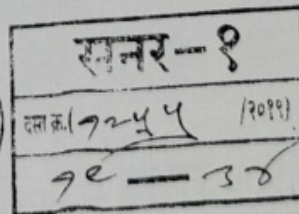 सनर-१
दस्त क्र.(१२५५ /२०१९)
१९ — ३४